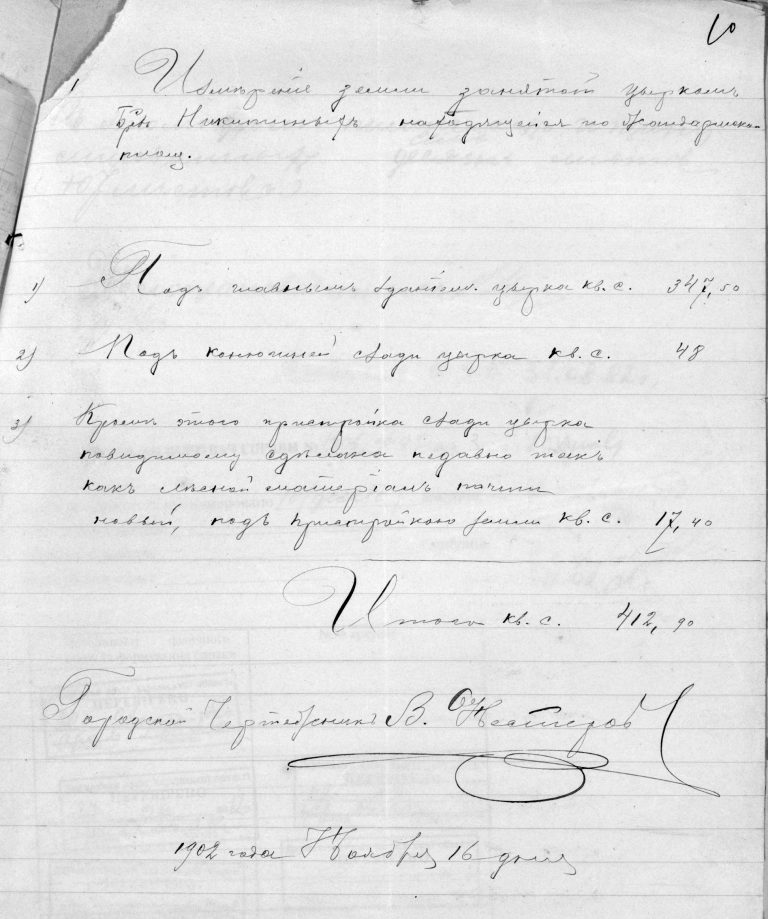 10
Измѣреніе земли занятой цыркомъ
Бр. Никитиныхъ находящейся по Жандармской
площ.
1) Подъ главнымъ зданіем. цырка кв. с. 347,50
2) Подъ конюшней сзади цырка кв. с. 48
3) Кромѣ этого пристройка сзади цырка
повидимому сдѣлана недавно такъ
какъ лѣсной матеріалъ почти
новый, подъ пристройкою земли кв. с. 17,40
Итого кв. с. 412,90
Городской Чертежникъ В. Нестеровъ
1902 года Ноября 16 дня